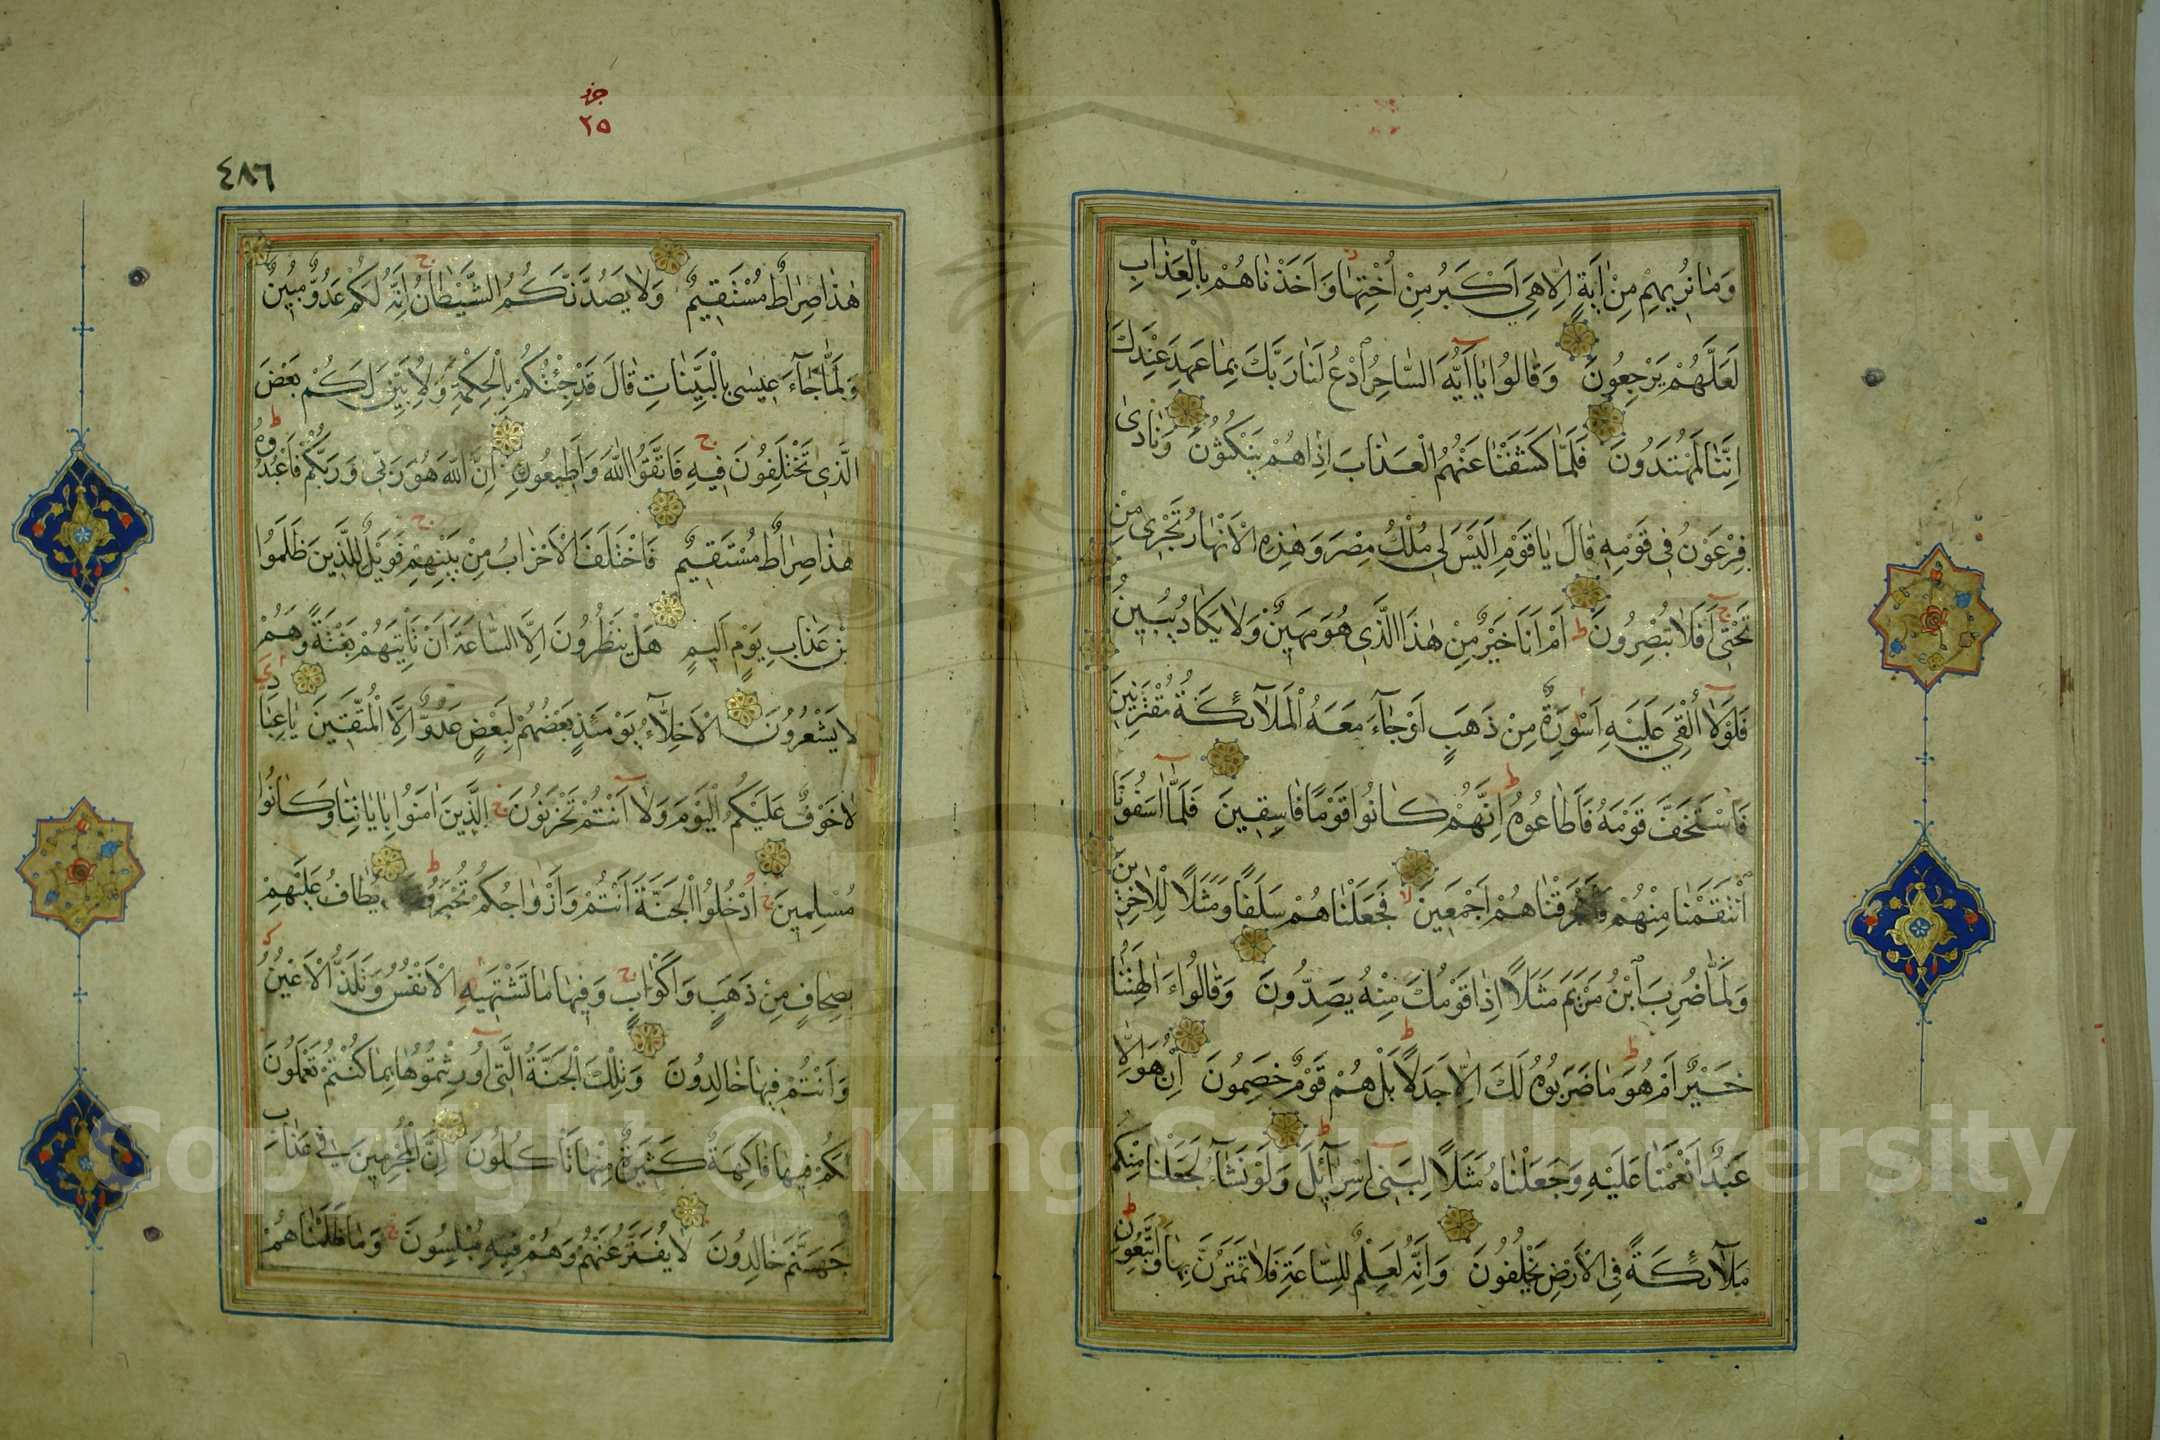 وَمٰا نُرِيهِمْ مِنْ اٰيَةٍ اِلّٰا هِيَ اَكْبَرُ مِنْ اُخْتِهٰا وَاَخَذْنٰاهُمْ بِالْعَذٰابِ
لَعَلَّهُمْ يَرْجِعُونَ وَقٰالُوا يٰٓا اَيُّهَ السّٰاحِرُ ادْعُ لَنٰا رَبَّكَ بِمٰا عَهِدَ عِنْدَكَ
اِنَّنٰا لَمُهْتَدُونَ فَلَمّٰا كَشَفْنٰا عَنْهُمُ الْعَذٰابَ اِذٰا هُمْ يَنْكُثُونَ وَنٰادىٰ
فِرْعَوْنُ فِي قَوْمِهِ قٰالَ يٰا قَوْمِ اَلَيْسَ لِي مُلْكُ مِصْرَ وَهٰذِهِ الْاَنْهٰارُ تَجْرِي مِنْ
تَحْتِي اَفَلٰا تُبْصِرُونَ ط اَمْ اَنَا خَيْرٌ مِنْ هٰذَا الَّذِي هُوَ مَهِينٌ وَلٰا يَكٰادُ يُبِينُ
فَلَوْلٰٓا اُلْقِيَ عَلَيْهِ اَسْوِرَةٌ مِنْ ذَهَبٍ اَوْ جٰٓاءَ مَعَهُ الْمَلٰٓائِكَةُ مُقْتَرِنِينَ
فَاسْتَخَفَّ قَوْمَهُ فَاَطٰاعُوهُ ط اِنَّهُمْ كٰانُوا قَوْمًا فٰاسِقِينَ فَلَمّٰٓا اٰسَفُونَا
انْتَقَمْنٰا مِنْهُمْ فَاَغْرَقْنٰاهُمْ اَجْمَعِينَ لا فَجَعَلْنٰاهُمْ سَلَفًا وَمَثَلًا لِلْاٰخِرِينَ
وَلَمّٰا ضُرِبَ ابْنُ مَرْيَمَ مَثَلًا اِذٰا قَوْمُكَ مِنْهُ يَصِدُّونَ وَقٰالُوا ءَاٰلِهَتُنٰا
خَيْرٌ اَمْ هُوَ ط مٰا ضَرَبُوهُ لَكَ اِلّٰا جَدَلًا ط بَلْ هُمْ قَوْمٌ خَصِمُونَ اِنْ هُوَ اِلّٰا
عَبْدٌ اَنْعَمْنٰا عَلَيْهِ وَجَعَلْنٰاهُ مَثَلًا لِبَنِي اِسْرٰٓائِلَ ط وَلَوْ نَشٰٓاءُ لَجَعَلْنٰا مِنْكُمْ
مَلٰٓائِكَةً فِي الْاَرْضِ يَخْلُفُونَ وَاِنَّهُ لَعِلْمٌ لِلسّٰاعَةِ فَلٰا تَمْتَرُنَّ بِهٰا وَاتَّبِعُونِ ط
جزو
٢٥
٤٨٦
هٰذٰا صِرٰاطٌ مُسْتَقِيمٌ وَلٰا يَصُدَّنَّكُمُ الشَّيْطٰانُ ج اِنَّهُ لَكُمْ عَدُوٌّ مُبِينٌ
وَلَمّٰا جٰٓاءَ عِيسٰى بِالْبَيِّنٰاتِ قٰالَ قَدْ جِئْتُكُمْ بِالْحِكْمَةِ وَلِاُبَيِّنَ لَكُمْ بَعْضَ
الَّذِي تَخْتَلِفُونَ فِيهِ ج فَاتَّقُوا اللّٰهَ وَاَطِيعُونِ اِنَّ اللّٰهَ هُوَ رَبِّي وَرَبُّكُمْ فَاعْبُدُوهُ ط
هٰذٰا صِرٰاطٌ مُسْتَقِيمٌ فَاخْتَلَفَ الْاَحْزٰابُ مِنْ بَيْنِهِمْ ج فَوَيْلٌ لِلَّذِينَ ظَلَمُوا
مِنْ عَذٰابِ يَوْمٍ اَلِيمٍ هَلْ يَنْظُرُونَ اِلَّا السّٰاعَةَ اَنْ تَاْتِيَهُمْ بَغْتَةً وَهُمْ
لٰا يَشْعُرُونَ الْاَخِلّٰٓاءُ يَوْمَئِذٍ بَعْضُهُمْ لِبَعْضٍ عَدُوٌّ اِلَّا الْمُتَّقِينَ يٰا عِبٰادِي
لٰا خَوْفٌ عَلَيْكُمُ الْيَوْمَ وَلٰٓا اَنْتُمْ تَحْزَنُونَ ج اَلَّذِينَ اٰمَنُوا بِاٰيٰاتِنٰا وَكٰانُوا
مُسْلِمِينَ ج اُدْخُلُوا الْجَنَّةَ اَنْتُمْ وَاَزْوٰاجُكُمْ تُحْبَرُونَ ط يُطٰافُ عَلَيْهِمْ
بِصِحٰافٍ مِنْ ذَهَبٍ وَاَكْوٰابٍ ج وَفِيهٰا مٰا تَشْتَهِيهِ الْاَنْفُسُ وَتَلَذُّ الْاَعْيُنُ
وَاَنْتُمْ فِيهٰا خٰالِدُونَ وَتِلْكَ الْجَنَّةُ الَّتِي اُورِثْتُمُوهٰا بِمٰا كُنْتُمْ تَعْمَلُونَ
لَكُمْ فِيهٰا فٰاكِهَةٌ كَثِيرَةٌ مِنْهٰا تَاْكُلُونَ اِنَّ الْمُجْرِمِينَ فِي عَذٰابِ
جَهَنَّمَ خٰالِدُونَ لٰا يُفَتَّرُ عَنْهُمْ وَهُمْ فِيهِ مُبْلِسُونَ ج وَمٰا ظَلَمْنٰاهُمْ
Copyright © King Saud University